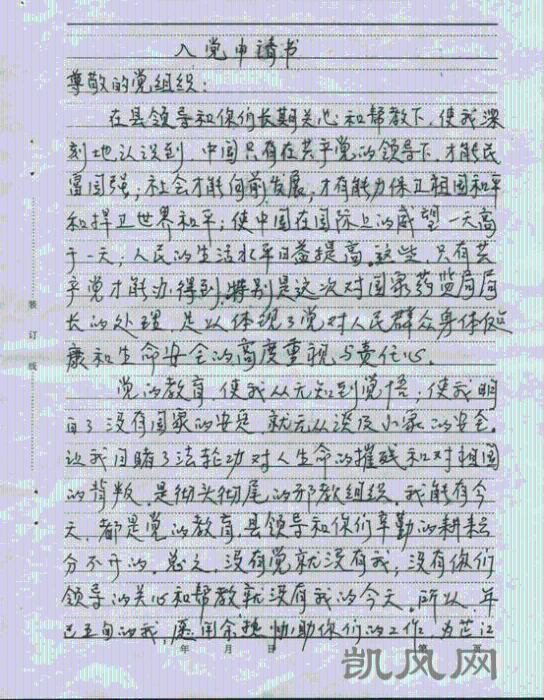 入党申请书
尊敬的党组织：
在县领导和你们长期关心和帮教下，使我深
刻地认识到，中国只有在共产党的领导下，才能民
富国强；社会才能向前发展，才有能力保卫祖国和平
和捍卫世界和平；使中国在国际上的威望一天高
于一天；人民的生活水平日益提高。这些，只有共
产党才能办得到，特别是这次对国家药监局局
长的处理，足以体现了党对人民群众身体健
康和生命安全的高度重视与责任心。
党的教育，使我从无知到觉悟；使我明
白了没有国家的安定，就无从谈及小家的安全。
让我目睹了法轮功对人生命的摧残和对祖国
的背叛，是彻头彻尾的邪教组织。我能有今
天，都是党的教育，县领导和你们辛勤的耕耘
分不开的。总之，没有党就没有我；没有你们
领导的关心和帮教就没有我的今天。所以，年
已五旬的我，愿用余热协助你们的工作，为芷江
年 月 日 第 页
装 订 线
凯风网